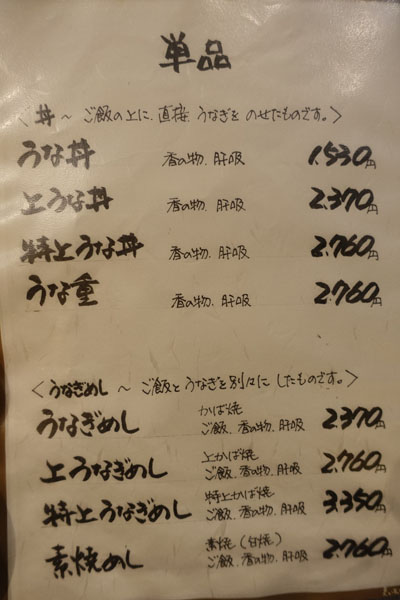 単品
〈丼 ～ ご飯の上に、直接 うなぎを のせたものです。〉
うな丼 香の物、肝吸 1.530円
上うな丼 香の物、肝吸 2.370円
特上うな丼 香の物、肝吸 2.760円
うな重 香の物、肝吸 2.760円
〈うなぎめし ～ ご飯と うなぎを別々に したものです。〉
かば焼
うなぎめし ご飯、香の物、肝吸 2.370円
上かば焼
上うなぎめし ご飯、香の物、肝吸 2.760円
特上かば焼
特上うなぎめし ご飯、香の物、肝吸 3.350円
素焼(白焼)
素焼めし ご飯、香の物、肝吸 2.760円